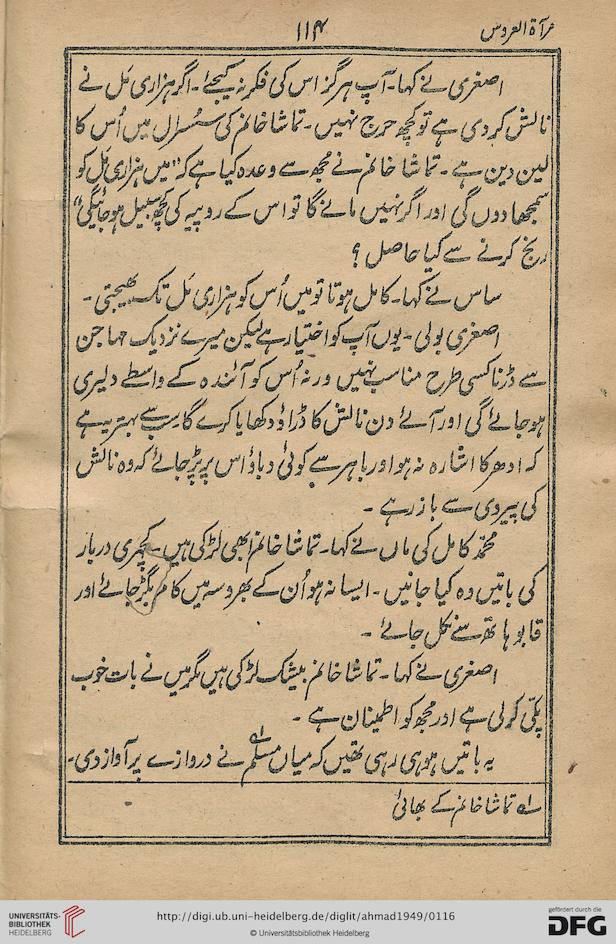 مرآۃ العروس
۱۱۴
اصغری نے کہا۔ آپ ہرگز اس کی فکر نہ کیجئے۔ اگر ہزاری مَل نے
نالش کر دی ہے تو کچھ حرج نہیں۔ تماشا خانم کی سسُسرال میں اُس کا
لین دین ہے۔ تماشا خانم نے مجُھ سے وعدہ کیا ہے کہ "میں ہزاری مَل کو
سمجھا دوں گی اور اگر نہیں مانے گا تو اس کے روپیہ کی کچھ سبیل ہو جائیگی"
رنج کرنے سے کیا حاصل ؟
ساس نے کہا۔ کامل ہوتا تو میں اُس کو ہزاری مَل تک بھیجتی۔
اصغری بولی۔ یوں آپ کو اختیار ہے لیکن میرے نزدیک مہاجن
سے ڈرنا کسی طرح مناسب نہیں ورنہ اُس کو آئندہ کے واسطے دلیری
ہو جائے گی اور آئے دن نالش کا ڈراؤ دکھایا کرے گا سب سے بہتر یہ ہے
کہ ادھر کا اشارہ نہ ہو اور باہر سے کوئی دباؤ اس پر پڑ جائے کہ وہ نالش
کی پیروی سے باز رہے۔
محمّد کامل کی ماں نے کہا۔ تماشا خانم ابھی لڑکی ہیں۔ کچہری دربار
کی باتیں وہ کیا جانیں۔ ایسا نہ ہو اُن کے بھروسہ میں کام بگڑ جائے اور
قابو ہاتھ سے نکل جائے۔
اصغری نے کہا۔ تماشا خانم بیشک لڑکی ہیں مگر میں نے بات خوب
پکّی کر لی ہے اور مجھ کو اطمینان ہے۔
یہ باتیں ہو ہی رہی تھیں کہ میاں مسلم ؎۱ نے دروازے پر آواز دی۔
؎۱ تماشا خانم کے بھائی
UNIVERSITÄTS-
BIBLIOTHEK
HEIDELBERG
http://digi.ub.uni-heidelberg.de/diglit/ahmad1949/0116
© Universitätsbibliothek Heidelberg
gefördert durch die
DFG